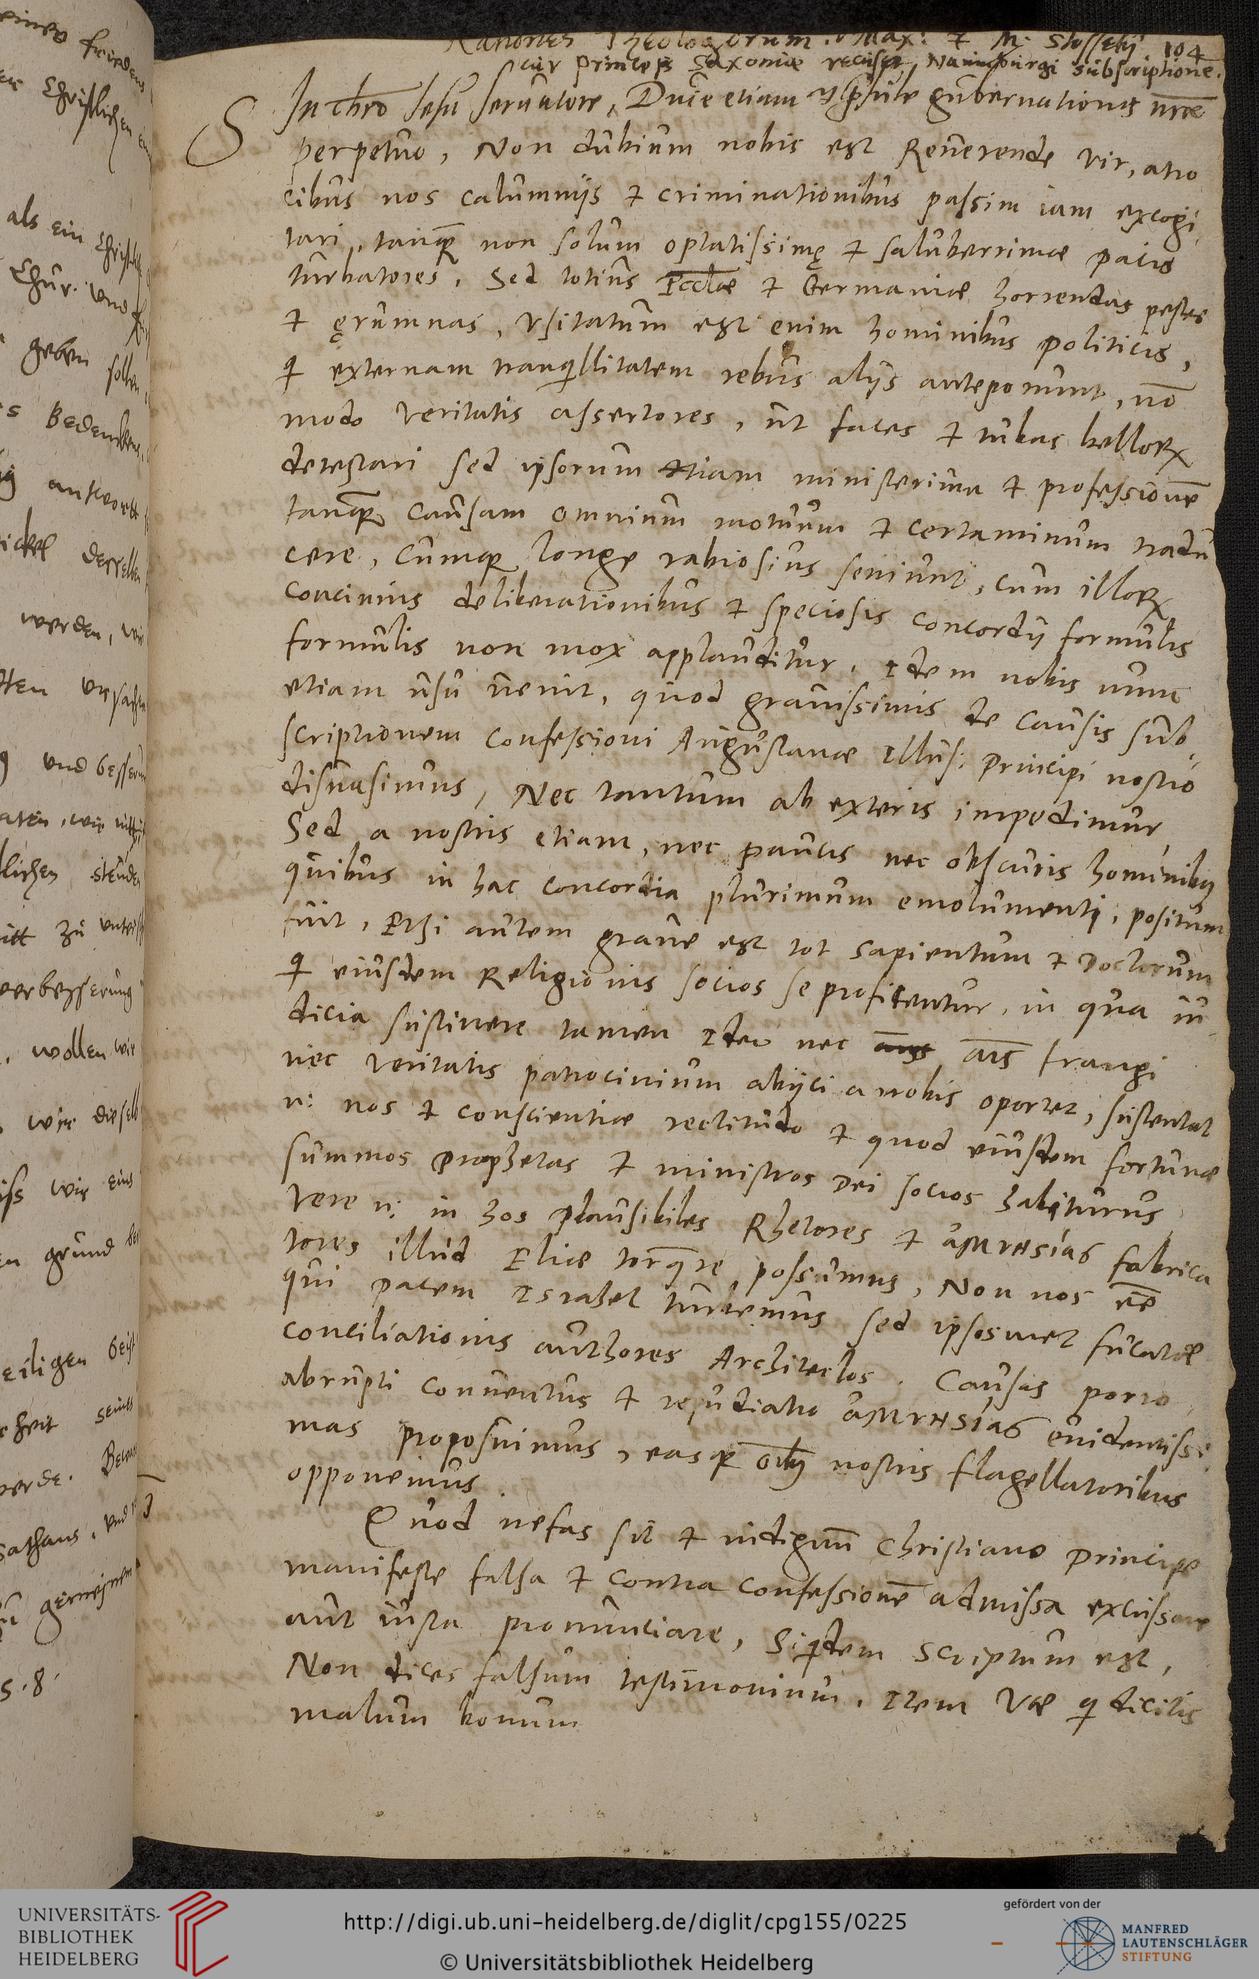 Rationes Theologorum Max: et M. Stosselij 104
cur princeps Saxoniae recuset Naumburgi subscriptionē.
S In chrō Jesu seruatore, Duce etiam gubernationis nrae
perpetuo, Non dubium nobis est Reuerende vir, atro
cibus nos calumnijs et criminationibus passim iam excogi
tari, tanq̄ non solum optatissimę et saluberrimae pacis
turbatores, Sed totius Eccliae et Germaniae horrendas pestes
et ęrumnas, Vsitatum est enim hominibus politicis,
q̄ externam tranq̄llitatem rebus alijs anteponunt, nō
modo veritatis assertores, ut faces et tubas belloꝝ
detestari sed ipsorum etiam ministerium et professionē
tanq̄ causam omnium motuum et certaminum tradu
cere, Cumq̄ longe rabiosius seuiunt, cum illoꝝ
concinnis deliberationibus et speciosis concordię formulis
formulis non mox applauditur, Idem nobis nunc
etiam usu uenit, quod grauissimis de causis sub
scriptionem confessioni Augustanae Illus: principi nostro
dissuasimus, Nec tantum ab exteris impedimur
Sed a nostris etiam, nec paucis nec obscuris hominibꝰ
quibus in hac concordia plurimum emolumenti, positum
fuit, Etsi autem graue est tot sapientum et Doctorum
q̄ eiusdem Religionis socios se profitentur, iniqua iu
dicia sustinere tamen Ideo nec ais frangi
nec veritatis patrocinium abijci a nobis oportet, sustentat
n: nos et conscientiae rectitudo et quod eiusdem fortunae
summos prophetas et ministros Dei socios habituros
vere n: in hos plausibiles Rhetores et ἀμνηστίας fabrica
tores illud Eliae torq̄re possumus, Non nos eē
qui pacem Israhel turbemus sed ipsosmet fucatae
conciliationis authores Architectos. Causas porro
abrupti conuentus et repudiatio ἀμνηστίας euidentissi
mas proposuimus, easq̄ oībꝰ nostris flagellatoribus
opponemus.
Quod nefas sit et indignū Christiano principe
manifeste falsa et contra confessionē admissa excusare
aut iusta pronunciare, Siq̄dem scriptum est,
Non dices falsum testimonium, Item Vae q̄ dicitis
malum bonum
als ein Christlich
geben sollen
Bedencken
antwort
werden, wir
und besserung
zu
verbesserung
wollen wir
wir dieselb
wir eins
grund
eiligen Geist
Sathans, und
5.8
UNIVERSITÄTS-
BIBLIOTHEK
HEIDELBERG
http://digi.ub.uni-heidelberg.de/diglit/cpg155/0225
© Universitätsbibliothek Heidelberg
gefördert von der
MANFRED
LAUTENSCHLÄGER
STIFTUNG